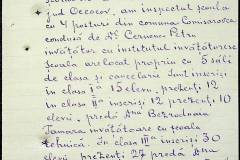 jud Cecosov, am inspectat școala
cu 4 posturi din comuna Comisarovca
condusă de Dl. Cernenco Petru
învățător cu institutul învățătoresc
Școala are local propriu cu 5 săli
de clasă și cancelarie Sunt inscriși
în clasa I-a 15 elevi. prezenți 12
în clasa II-a inscriși 12 prezenți 10
elevi. predă D-na Bezrodnaia
Tamara învățătoare cu școala
tehnică. În clasa III-a inscriși 30
elevi prezenți 27 predă D-na